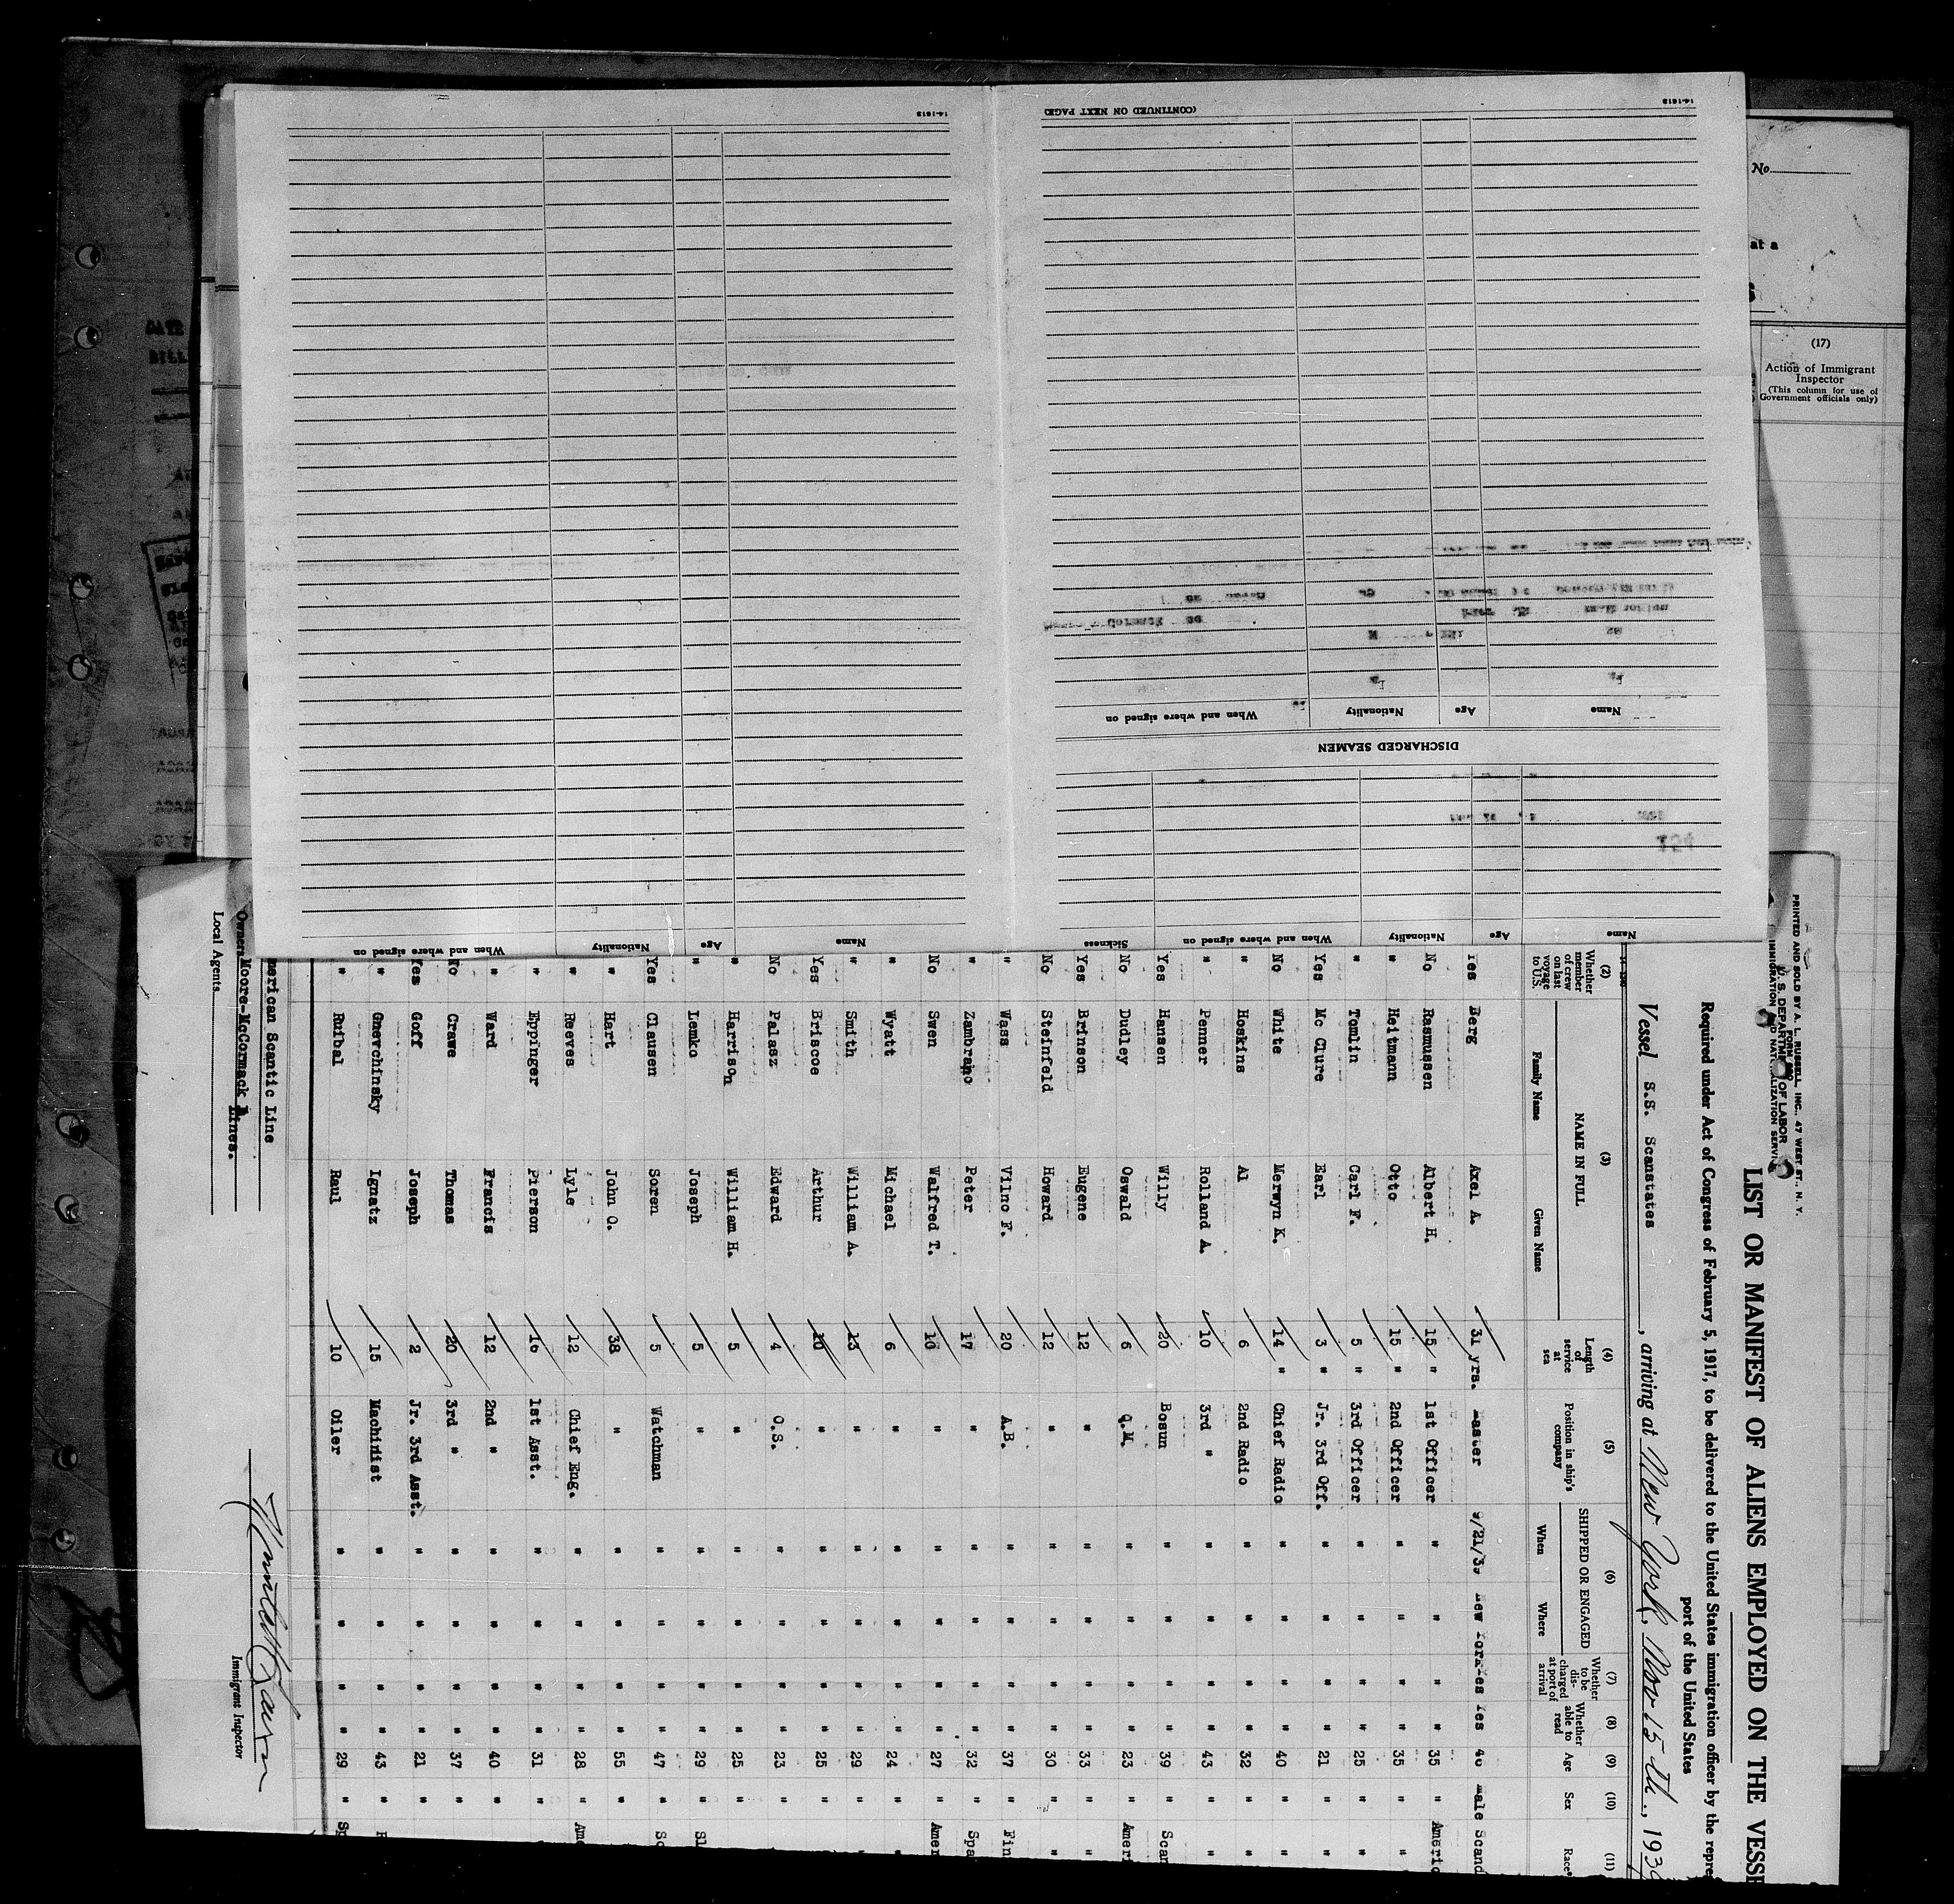 PRINTED AND SOLD BY A. L. RUSSELL, INC., 47 WEST ST., N. Y.
U. S. DEPARTMENT OF LABOR
IMMIGRATION AND NATURALIZATION SERVICE
LIST OR MANIFEST OF ALIENS EMPLOYED ON THE VESSE
Required under Act of Congress of February 5, 1917, to be delivered to the United States immigration officer by the repre
port of the United States
Vessel S.S. Scanstates, arriving at New York, Nov 15th., 193
(2) Whether member of crew on last voyage to U.S.
(3) NAME IN FULL Family Name Given Name
(4) Length of service at sea
(5) Position in ship's company
(6) SHIPPED OR ENGAGED When Where
(7) Whether to be discharged at port of arrival
(8) Whether able to read
(9) Age
(10) Sex
(11) Race*
Yes Berg Axel A. 31 yrs. Master /21/3 New York Yes Yes 46 Male Scand
No Rasmussen Albert H. 15 " 1st Officer " " " " 35 " Americ
" Heitmann Otto 15 " 2nd Officer " " " " 35 " "
" Tomlin Carl F. 5 " 3rd Officer " " " " 25 " "
Yes Mc Clure Earl 3 " Jr. 3rd Off. " " " " 21 " "
No White Merwyn K. 14 " Chief Radio " " " " 40 " "
" Hoskins Al 6 2nd Radio " " " " 32 " "
" Penner Rolland A. 10 3rd " " " " " 43 " "
Yes Hansen Willy 20 Bosun " " " " 39 " Scan
No Dudley Oswald 6 Q.M. " " " " 23 " Ameri
Yes Brinson Eugene 12 " " " " " 33 " "
No Steinfeld Howard 12 " " " " " 30 " "
" Wass Vilno F. 20 A.B. " " " " 37 " Fin
" Zambrano Peter 17 " " " " " 32 " Spa
No Swen Walfred T. 16 " " " " " 27 " Amer
" Wyatt Michael 6 " " " " " 24 "
" Smith William A. 13 " " " " " 29 "
Yes Briscoe Arthur 10 " " " " " 25 "
No Palasz Edward 4 O.S. " " " " 23 "
" Harrison William H. 5 " " " " " 25 "
" Lemko Joseph 5 " " " " " 29 " Sl
Yes Clausen Soren 5 Watchman " " " " 47 " Sc
" Hart John O. 38 " " " " " 55 "
" Reeves Lyle 12 Chief Eng. " " " " 28 " Ame
" Eppinger Pierson 16 1st Asst. " " " " 31 "
" Ward Francis 12 2nd " " " " " 40 "
No Crawe Thomas 20 3rd " " " " " 37 "
Yes Goff Joseph 2 Jr. 3rd Asst. " " " " 21 "
" Gnevchinsky Ignatz 15 Machinist " " " " 43 "
" Ruibal Raul 10 Oiler " " " " 29 " Sp
merican Scantic Line
Owners Moore-McCormack Lines.
Local Agents
Immigrant Inspector
Name Age Nationality When and where signed on Sickness
DISCHARGED SEAMEN
Name Age Nationality When and where signed on
14-1613
(CONTINUED ON NEXT PAGE)
Name Age Nationality When and where signed on
14-1613
No.
at a
(17)
Action of Immigrant
Inspector
(This column for use of
Government officials only)
DATE